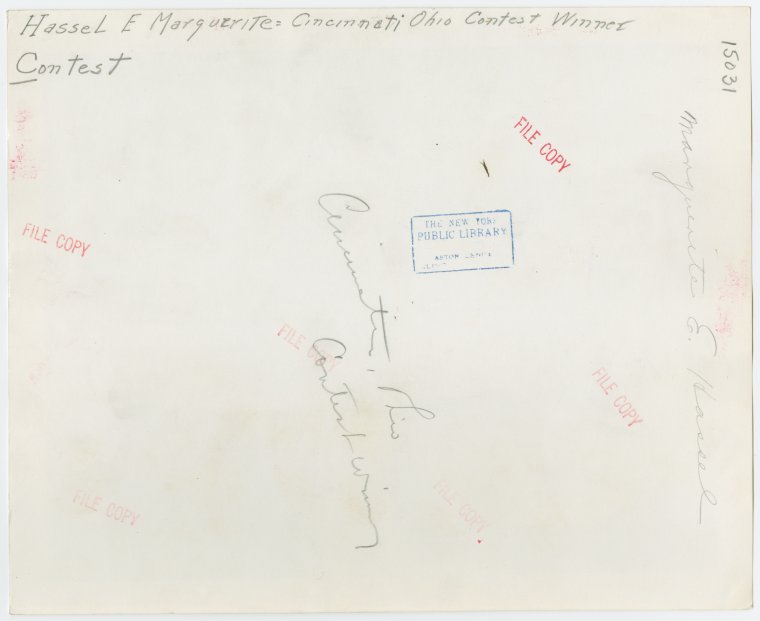 Hassel E Marguerite= Cincinnati Ohio Contest Winner
Contest
15031
FILE COPY
Marguerite E. Hassel
THE NEW YORK
PUBLIC LIBRARY
ASTOR LENOX
FILE COPY
Cincinnati, Ohio
Contest Winner
FILE COPY
FILE COPY
FILE COPY
FILE COPY